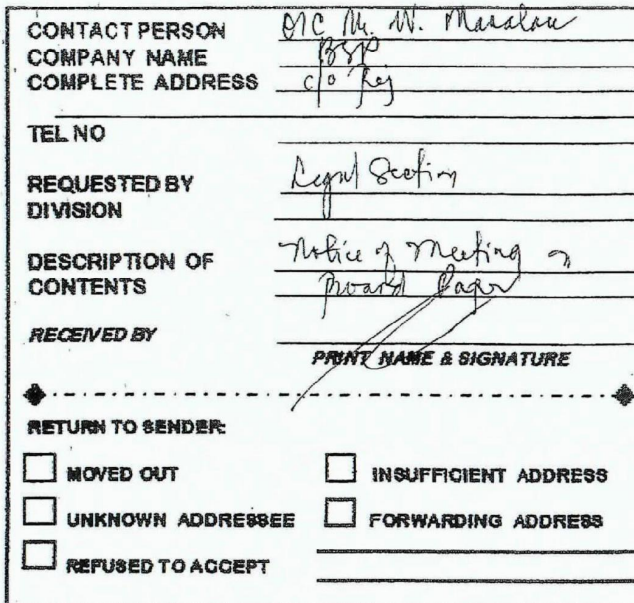 CONTACT PERSON OIC M. W. Masalau
COMPANY NAME BSP
COMPLETE ADDRESS c/o
TEL NO
REQUESTED BY Legal Section
DIVISION
DESCRIPTION OF Notice of Meeting
CONTENTS Board Paper
RECEIVED BY
PRINT NAME & SIGNATURE
RETURN TO SENDER:
MOVED OUT INSUFFICIENT ADDRESS
UNKNOWN ADDRESSEE FORWARDING ADDRESS
REFUSED TO ACCEPT